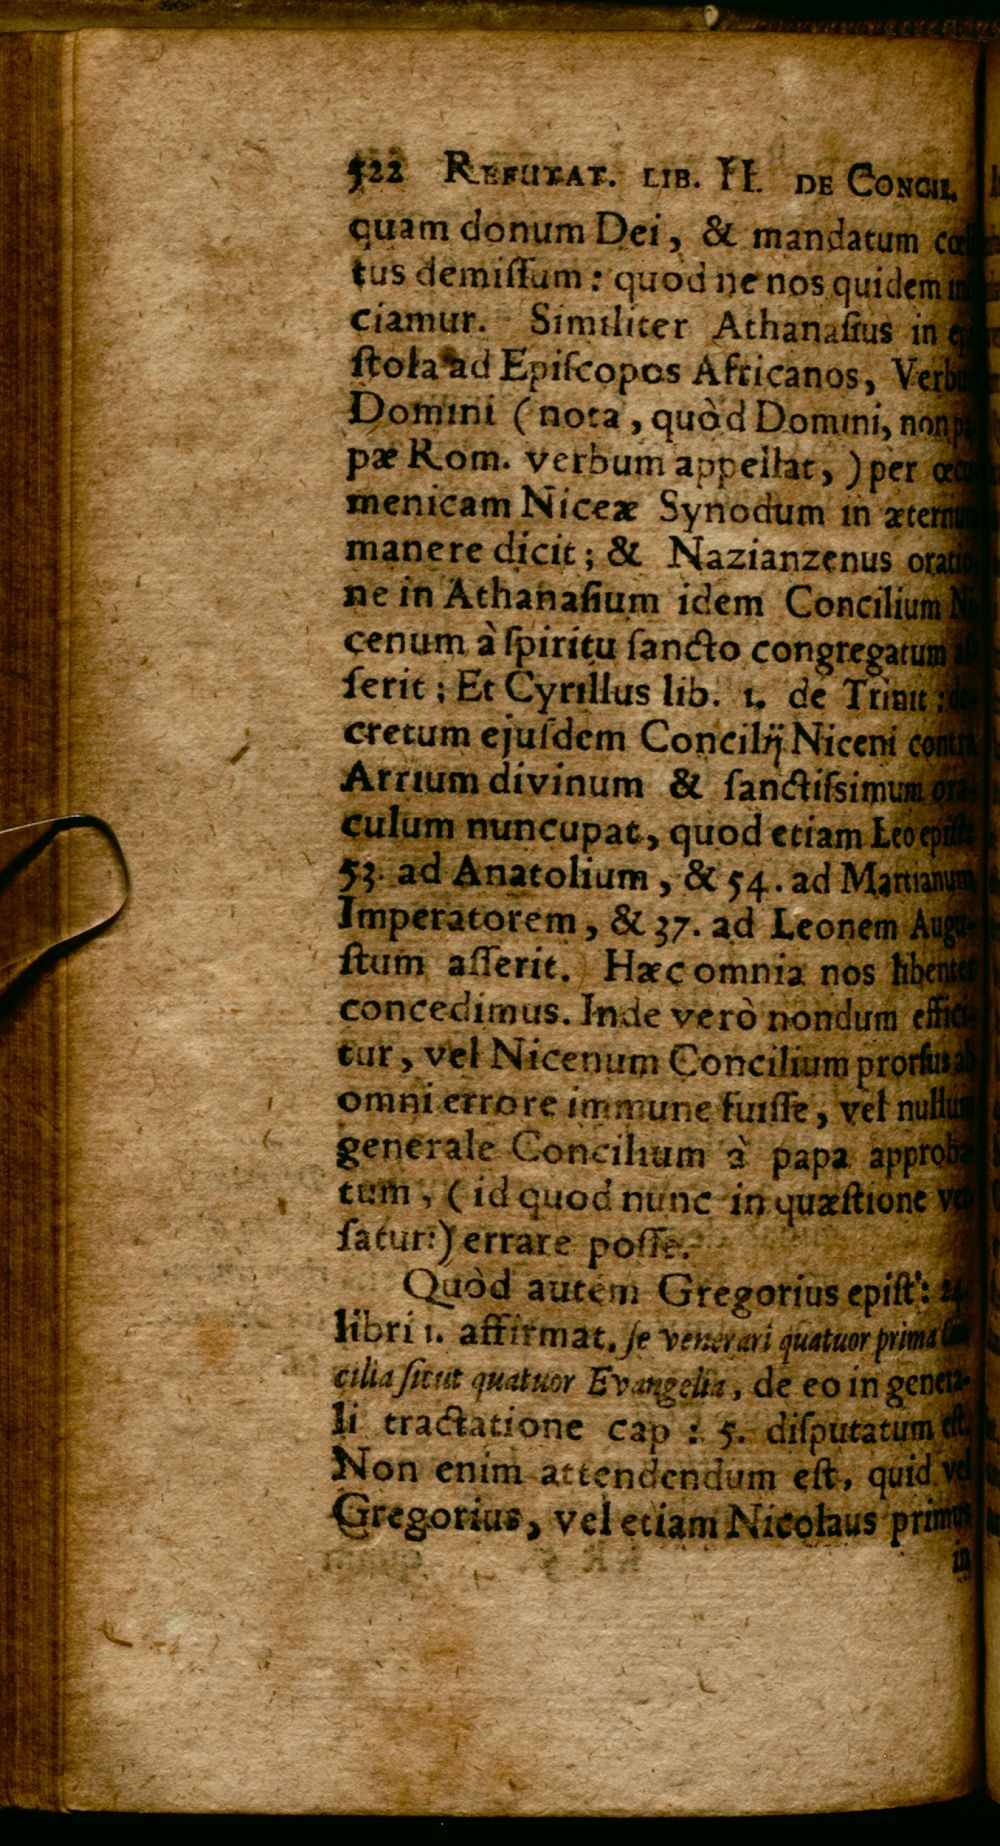 522 REFUTAT. LIB. II. DE CONCIL.
quam donum Dei, & mandatum cœli
tus demiſſum: quod ne nos quidem infi
ciamur. Similiter Athanaſius in epi
ſtola ad Epiſcopos Africanos, Verbum
Domini (nota, quòd Domini, non pa
pæ Rom. verbum appellat,) per œcu
menicam Niceæ Synodum in æternum
manere dicit; & Nazianzenus oratio
ne in Athanaſium idem Concilium Ni
cenum à ſpiritu ſancto congregatum aſ
ſerit; Et Cyrillus lib. 1. de Trinit: de-
cretum ejuſdem Concilij Niceni contra
Arrium divinum & ſanctiſsimum ora-
culum nuncupat, quod etiam Leo epiſt:
53. ad Anatolium, & 54. ad Martianum
Imperatorem, & 37. ad Leonem Augu-
ſtum aſſerit. Hæc omnia nos libenter
concedimus. Inde verò nondum effici-
tur, vel Nicenum Concilium prorſus ab
omni errore immune fuiſſe, vel nullum
generale Concilium à papa approba
tum, (id quod nunc in quæſtione ver
ſatur:) errare poſſe.
Quòd autem Gregorius epiſt: 24.
libri 1. affirmat, ſe venerari quatuor prima Con-
cilia ſicut quatuor Evangelia, de eo in genera-
li tractatione cap: 5. diſputatum eſt.
Non enim attendendum eſt, quid vel
Gregorius, vel etiam Nicolaus primus
in